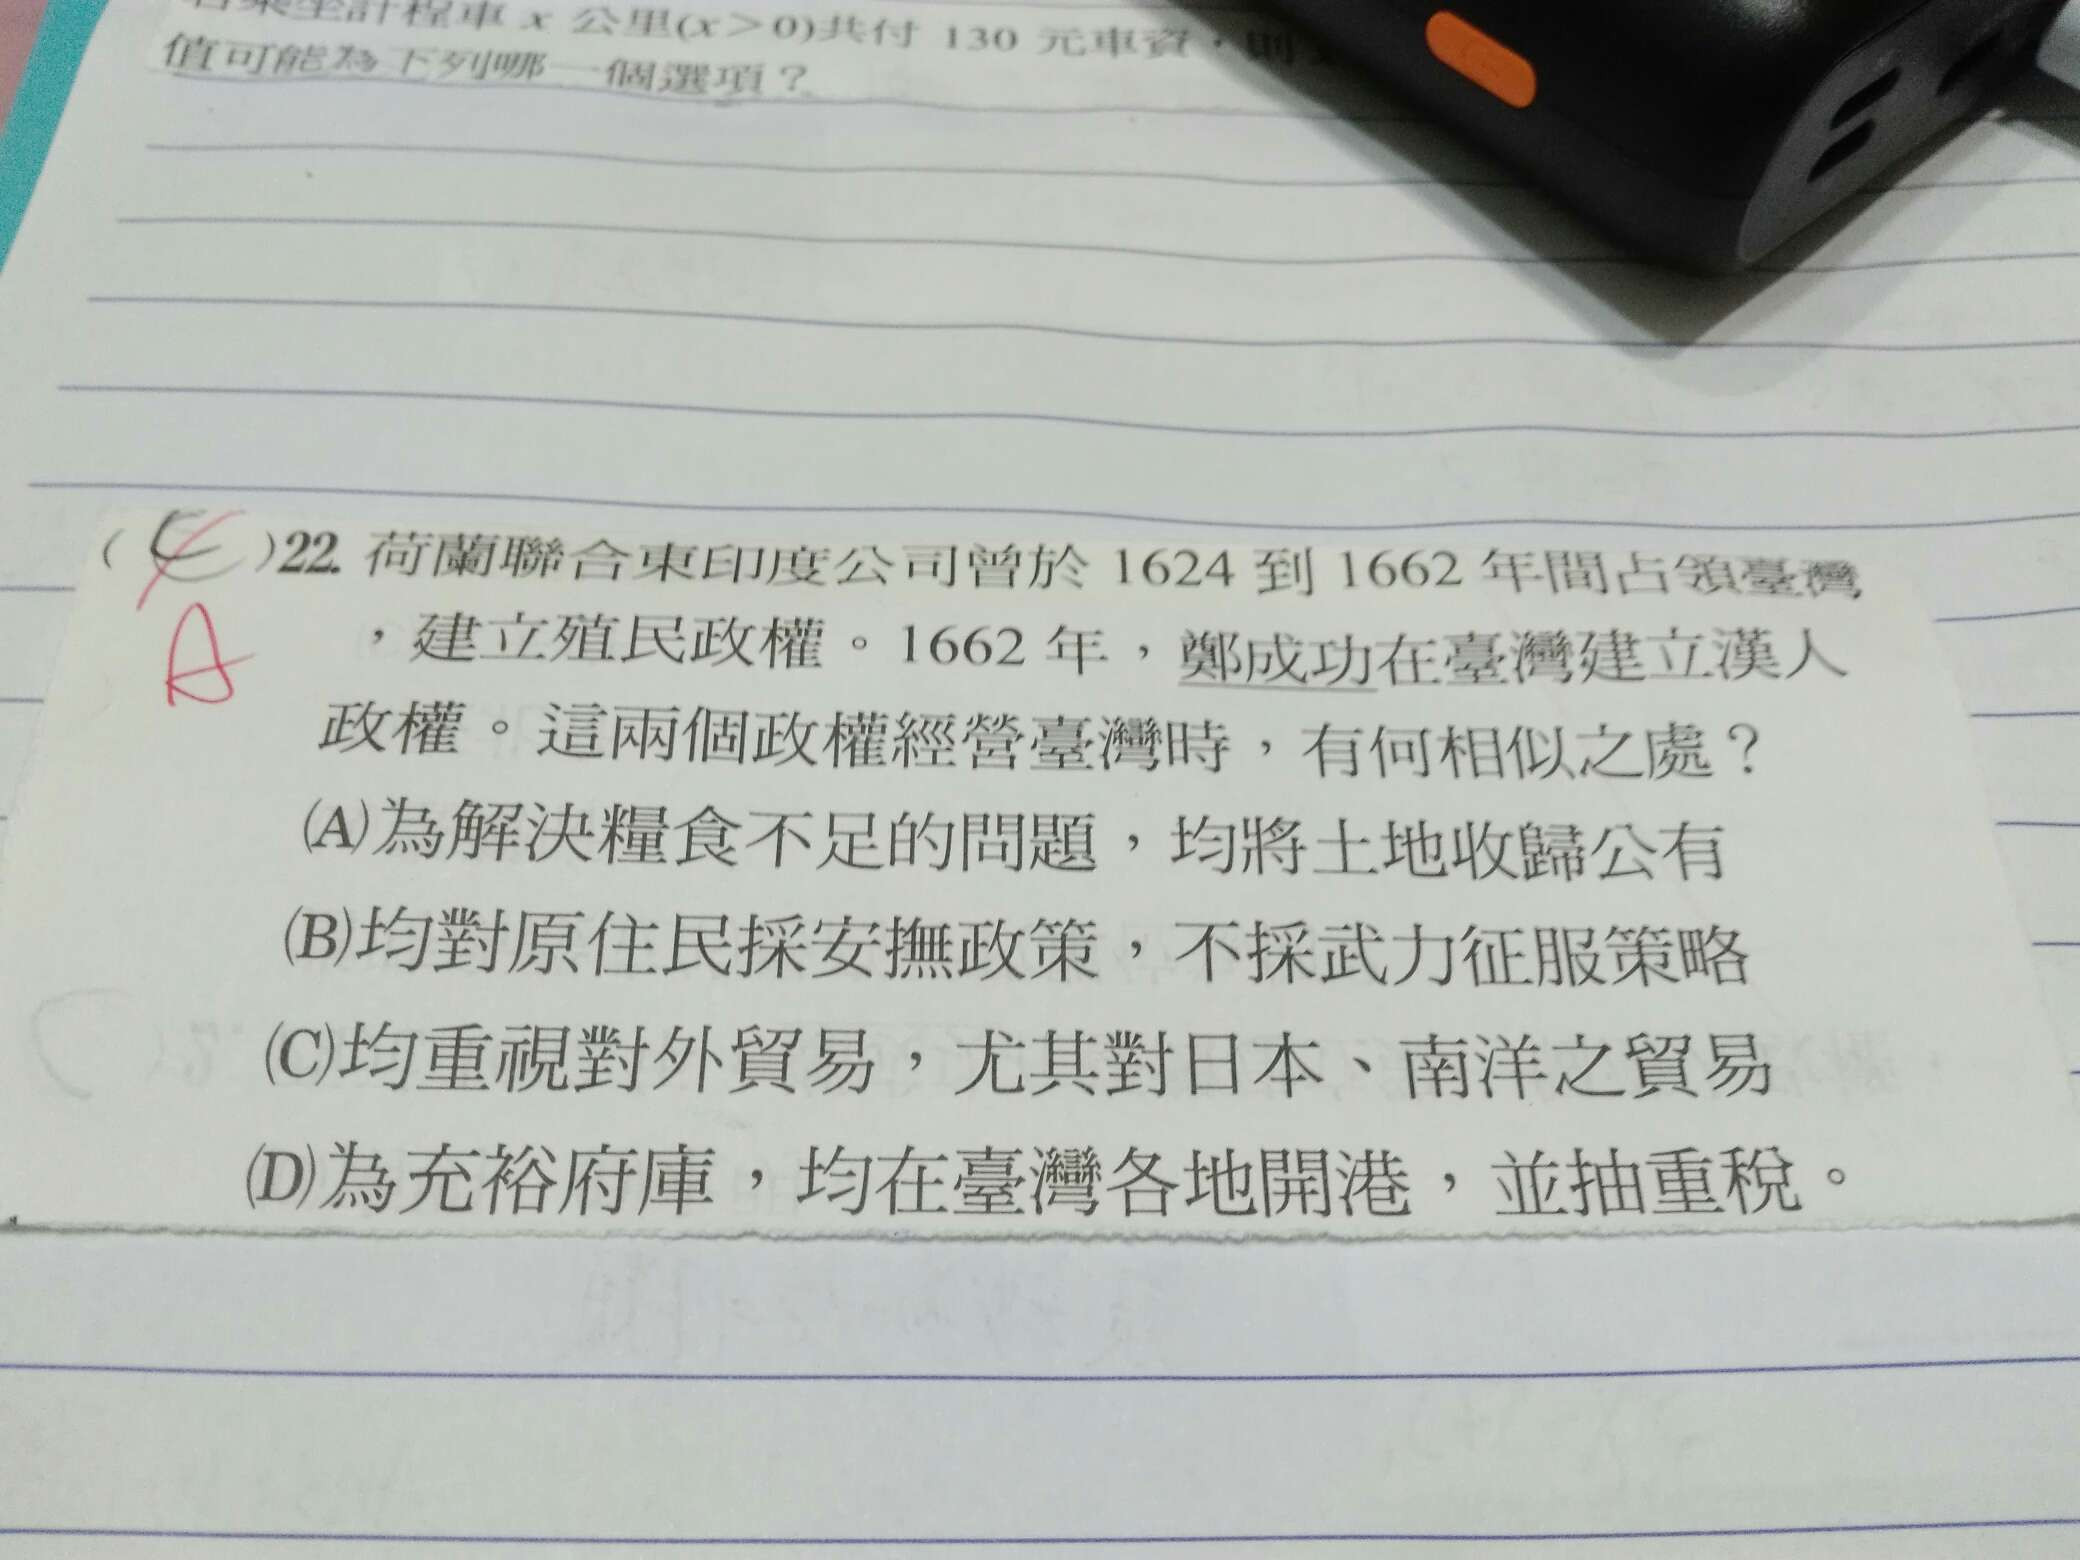 若乘坐計程車 x 公里(x＞0)共付 130 元車資，則
值可能為下列哪一個選項？
( C )22. 荷蘭聯合東印度公司曾於 1624 到 1662 年間占領臺灣
A
，建立殖民政權。1662 年，鄭成功在臺灣建立漢人
政權。這兩個政權經營臺灣時，有何相似之處？
(A)為解決糧食不足的問題，均將土地收歸公有
(B)均對原住民採安撫政策，不採武力征服策略
(C)均重視對外貿易，尤其對日本、南洋之貿易
(D)為充裕府庫，均在臺灣各地開港，並抽重稅。